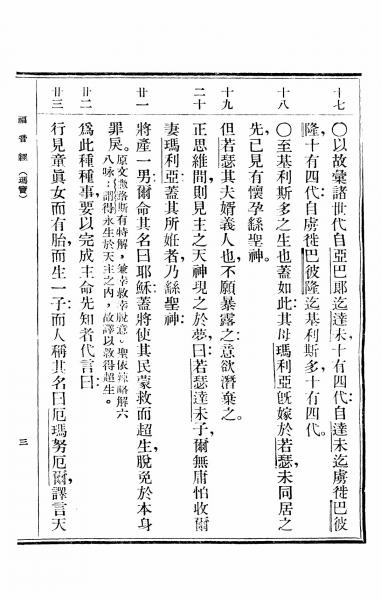 十七
〇以故彙諸世代自亞巴郎迄達未十有四代自達未迄虜徙巴彼
隆十有四代自虜徙巴彼隆迄基利斯多十有四代。
十八
〇至基利斯多之生也蓋如此其母瑪利亞旣嫁於若瑟未同居之
先已見有懷孕繇聖神。
十九
但若瑟其夫婿義人也不願暴露之意欲潛棄之。
二十
正思維間則見主之天神現之於夢曰若瑟達未子爾無庸怕收爾
妻瑪利亞蓋其所姙者乃繇聖神
廿一
將產一男爾命其名曰耶穌蓋將使其民蒙救而超生脫免於本身
罪戾。原文 有特解兼幸救幸脫意聖依 略解六
八咏謂得永生於天主之內故譯以救得超生。
廿二
為此種種事要以完成主命先知者代言曰
廿三
行見童眞女而有胎而生一子而人稱其名曰厄瑪努厄爾譯言天
福音經(瑪竇)
三